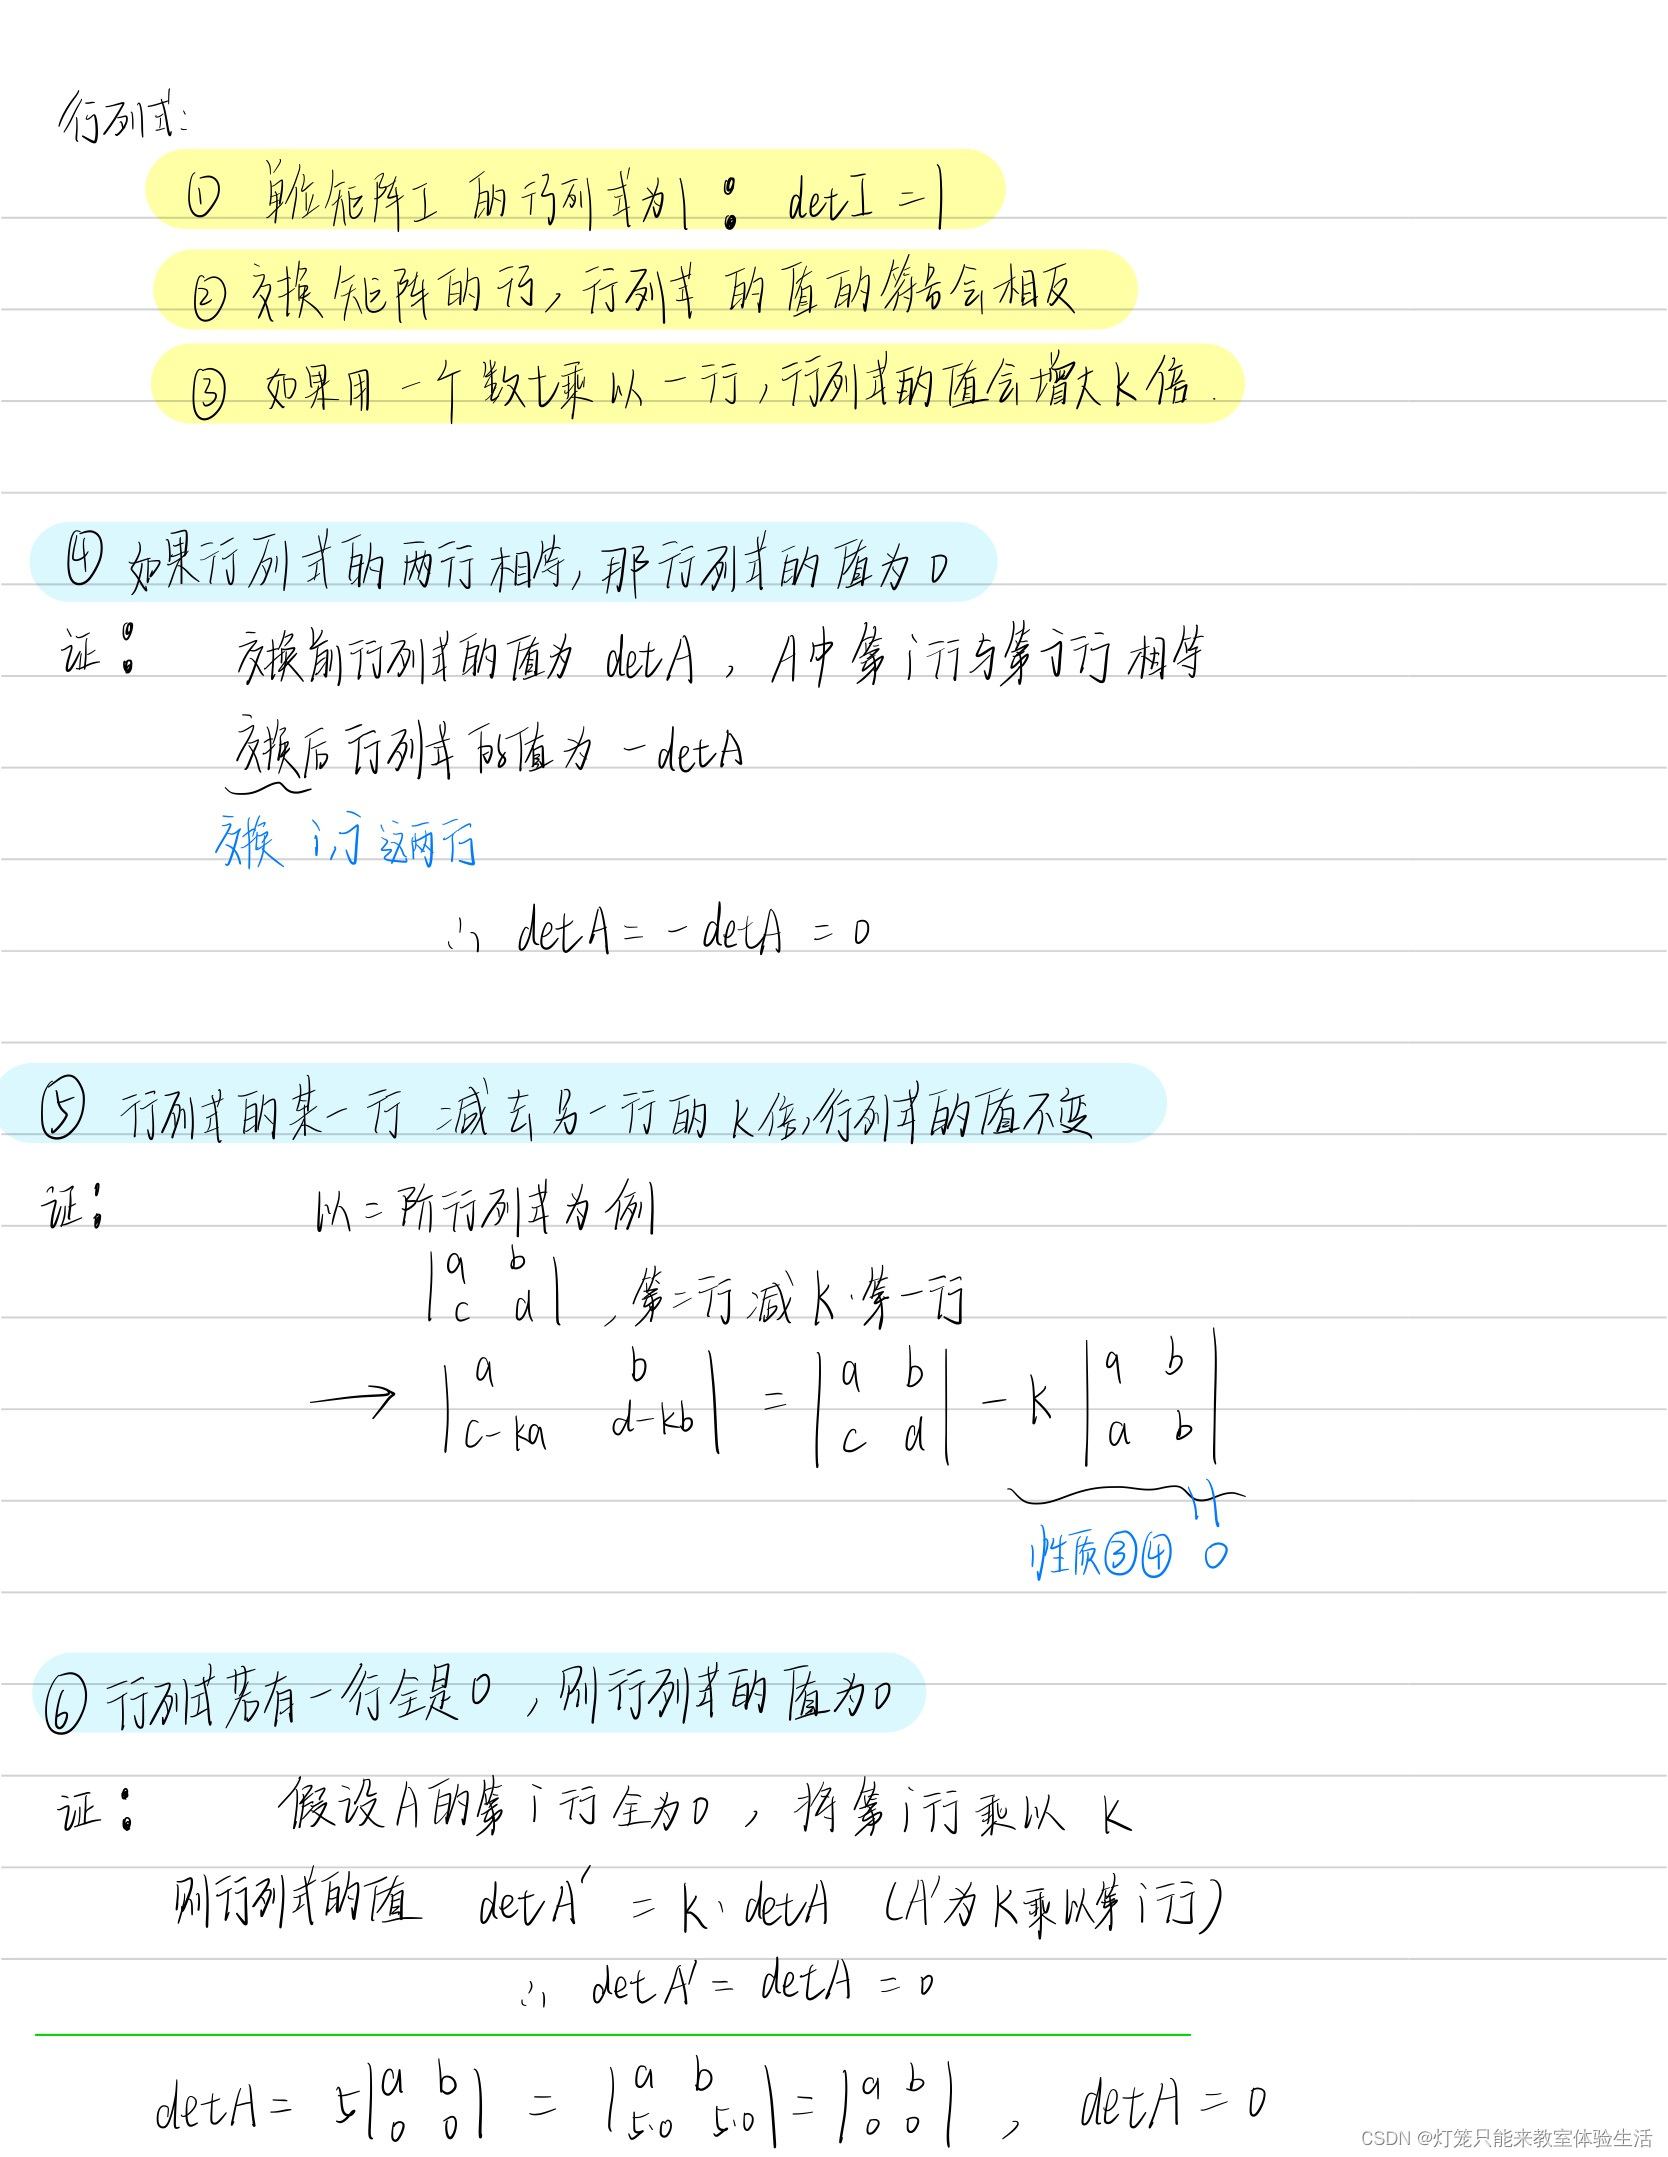 行列式:
① 单位矩阵I 的行列式为1： detI = 1
② 交换矩阵的行, 行列式的值的符号会相反
③ 如果用一个数t乘以一行, 行列式的值会增大k倍.
④ 如果行列式的两行相等, 那行列式的值为0
证： 交换前行列式的值为 detA, A中第i行与第j行相等
交换后行列式的值为 -detA
交换 i,j 这两行
∴ detA = -detA = 0
⑤ 行列式的某一行减去另一行的k倍, 行列式的值不变
证： 以二阶行列式为例
|a b|
|c d| , 第二行减k·第一行
→ |a b| = |a b| - k |a b|
|c-ka d-kb| |c d| |a b|
性质③④ 0
⑥ 行列式若有一行全是0, 则行列式的值为0
证： 假设A的第i行全为0, 将第i行乘以 k
则行列式的值 detA' = k·detA (A'为k乘以第i行)
∴ detA' = detA = 0
detA = 5|a b| = |a b| = |a b| , detA = 0
|0 0| |5·0 5·0| |0 0|
CSDN @灯笼只能来教室体验生活